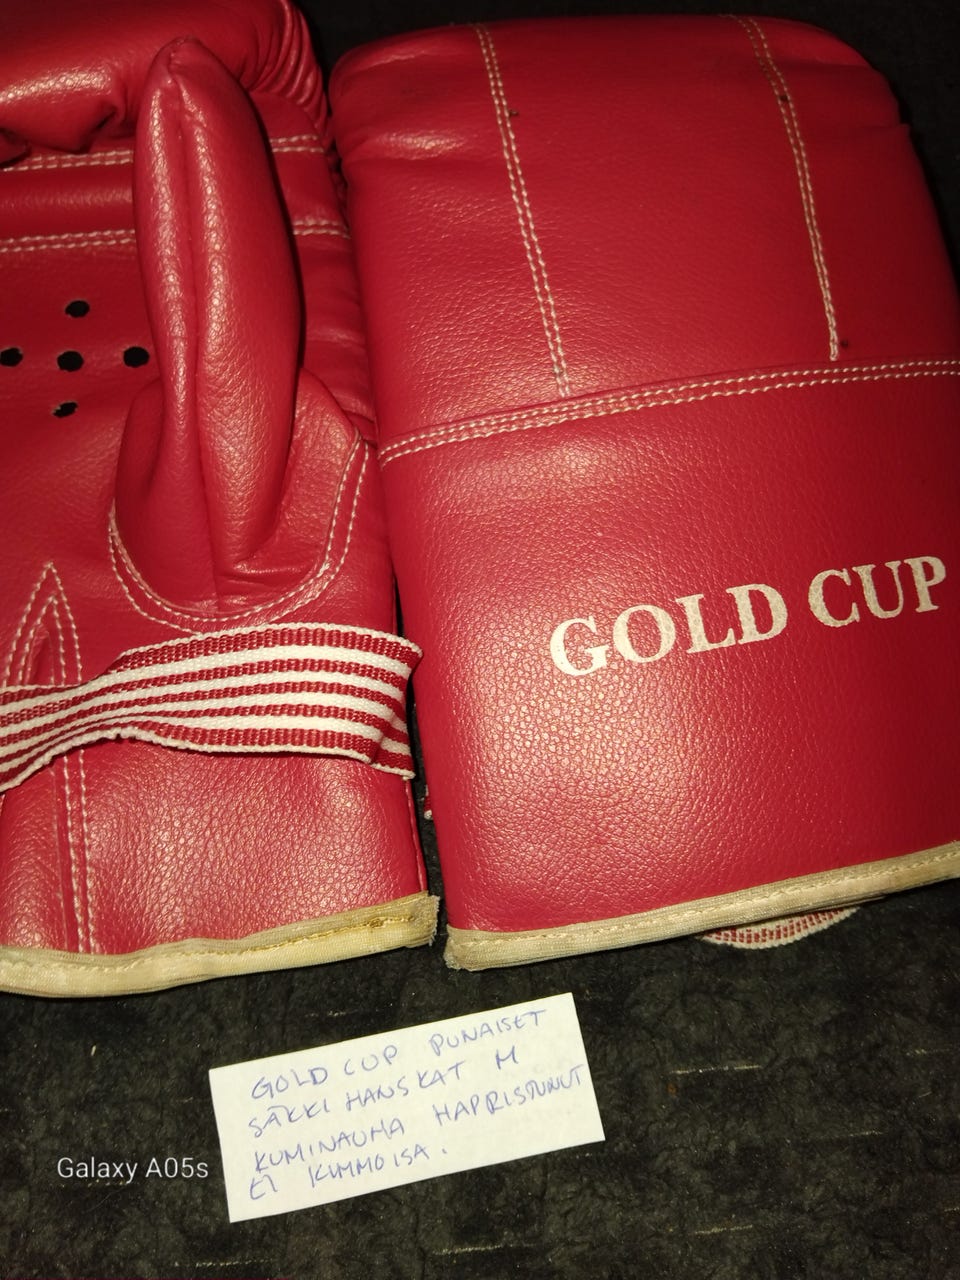 GOLD CUP
GOLD CUP PUNAISET
SÄKKI HANSKAT M
KUMINAUHA HAPRISTUNUT
EI KIMMOISA.
Galaxy A05s